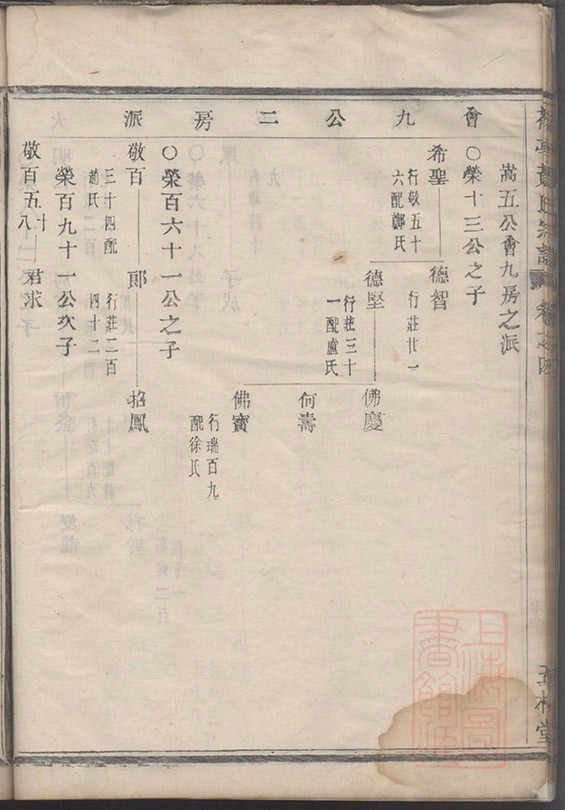 會九公二房派
嵩五公會九房之派
○榮十三公之子
希聖
行敬五十
六配鄭氏
德智
行莊廿一
德堅
行莊三十
一配盧氏
佛慶
何壽
佛寳
行瑞百九
配徐氏
○榮百六十一公之子
敬百
三十四配
趙氏
郎
行莊二百
四十二
招鳳
榮百九十一公次子
敬百五十八
君求
氏宗譜
卷之四
堂
上海圖書館藏